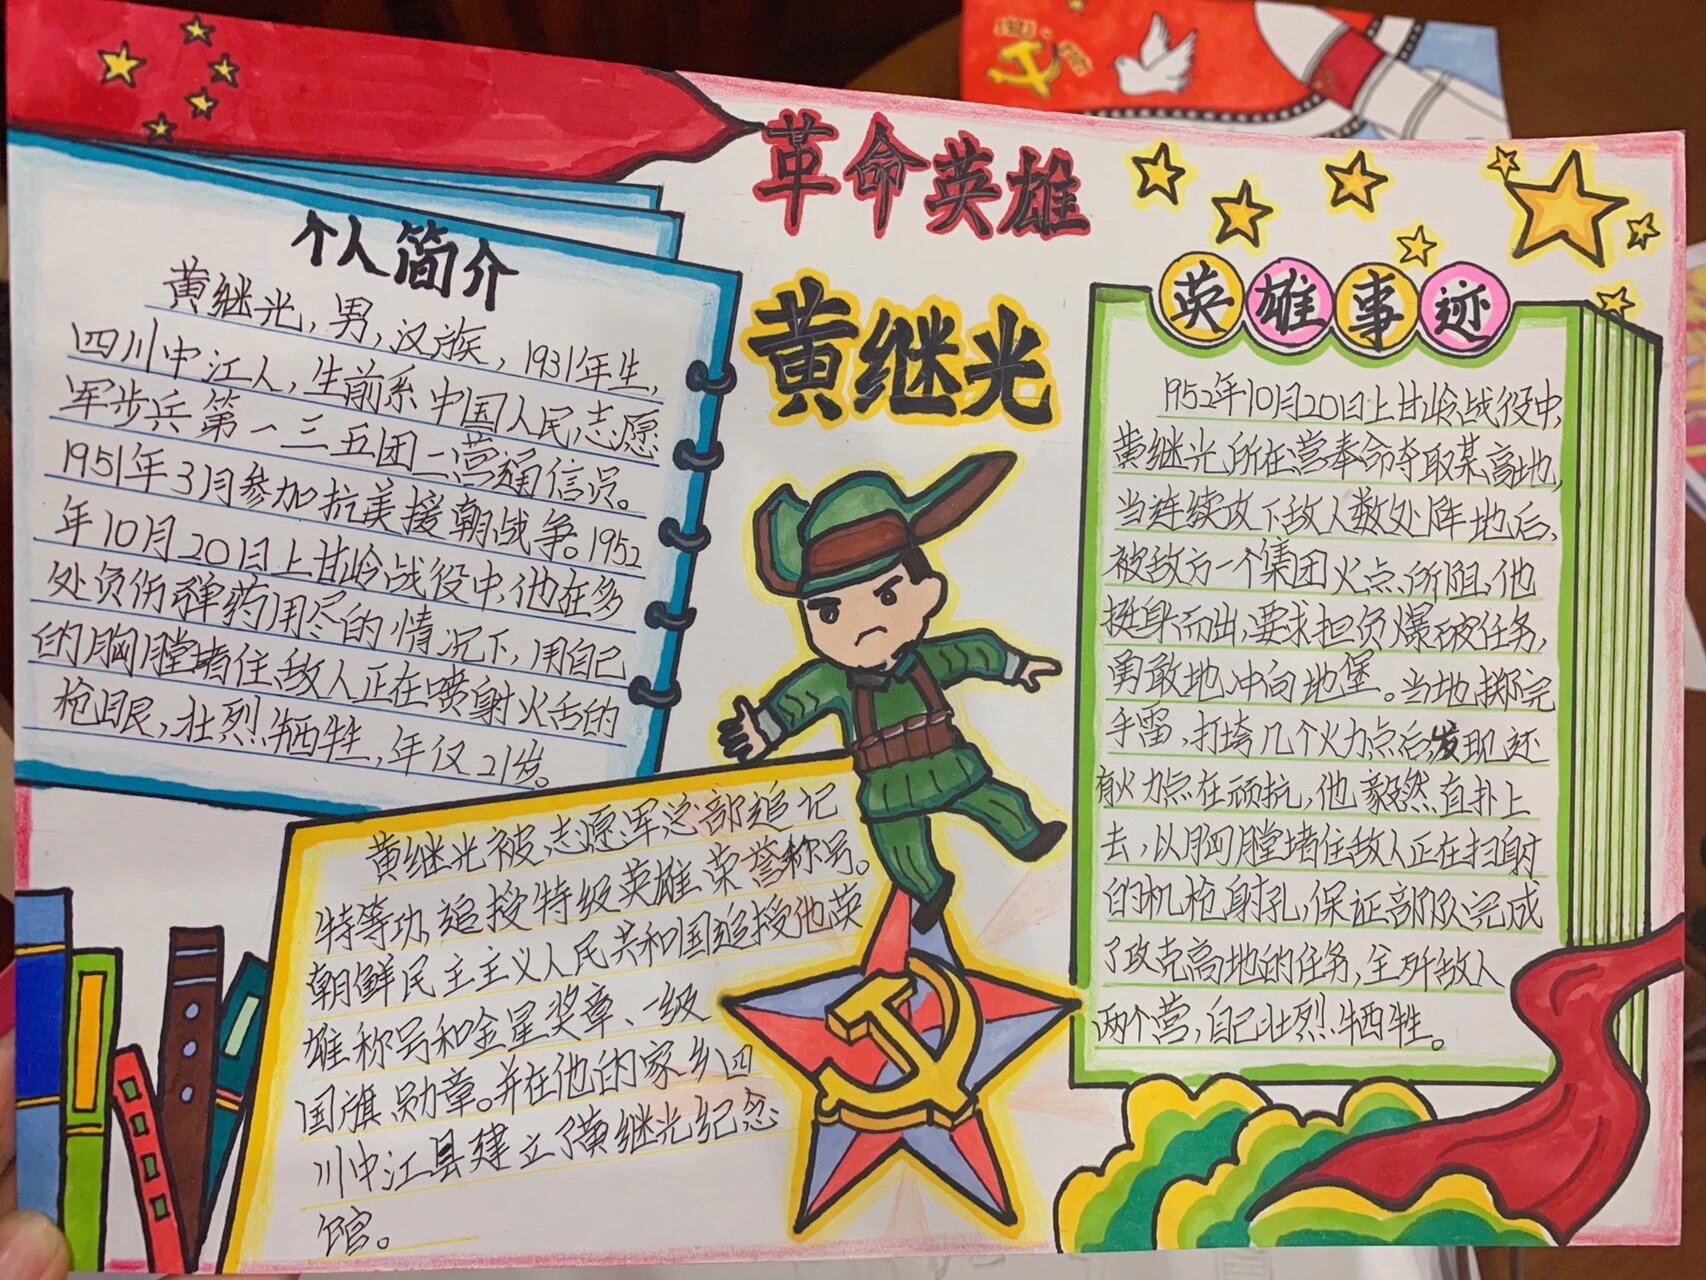 革命英雄
黄继光
个人简介
黄继光,男,汉族,1931年生,
四川中江人,生前系中国人民志愿
军步兵第一三五团二营通信员。
1951年3月参加抗美援朝战争。1952
年10月20日上甘岭战役中,他在多
处负伤弹药用尽的情况下,用自己
的胸膛堵住敌人正在喷射火舌的
枪眼,壮烈牺牲,年仅21岁。
黄继光被志愿军总部追记
特等功,追授特级英雄荣誉称号。
朝鲜民主主义人民共和国追授他英
雄称号和金星奖章、一级
国旗勋章。并在他的家乡四
川中江县建立了黄继光纪念
馆。
英雄事迹
1952年10月20日上甘岭战役中,
黄继光所在营奉命夺取某高地,
当连续攻下敌人数处阵地后,
被敌方一个集团火点所阻,他
挺身而出,要求担负爆破任务,
勇敢地冲向地堡。当地掷完
手雷,打垮几个火力点后发现还
有火力点在顽抗,他毅然直扑上
去,以胸膛堵住敌人正在扫射
的机枪射孔,保证部队完成
了攻克高地的任务,全歼敌人
两个营,自己壮烈牺牲。